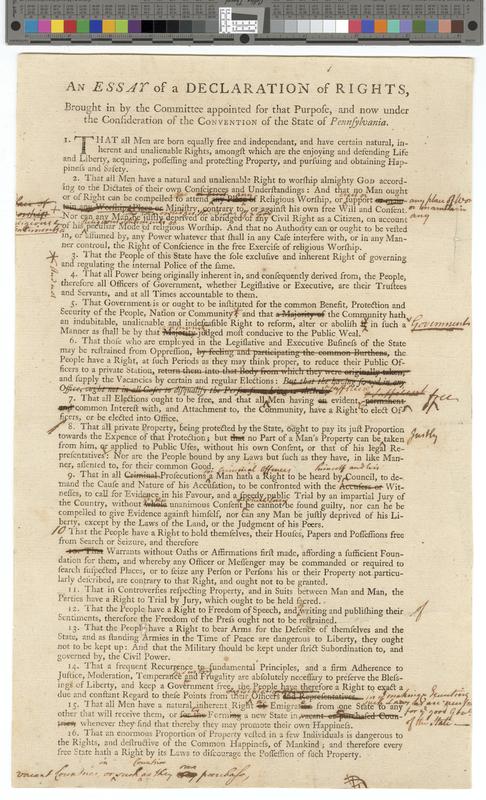 AN ESSAY of a DECLARATION of RIGHTS,
Brought in by the Committee appointed for that Purpose, and now under
the Consideration of the CONVENTION of the State of Pennsylvania.
1. THAT all Men are born equally free and independant, and have certain natural, in-
herent and unalienable Rights, amongst which are the enjoying and defending Life
and Liberty, acquiring, possessing and protecting Property, and pursuing and obtaining Hap-
piness and Safety.
2. That all Men have a natural and unalienable Right to worship almighty GOD accord-
ing to the Dictates of their own Consciences and Understandings: And that no Man ought
or of Right can be compelled to attend any Religious Worship, or support any place of Wor
or Ministry, contrary to, or against his own free Will and Consent.
Nor can any Man be justly deprived or abridged of any Civil Right as a Citizen, on account
of his peculiar Mode of religious Worship. And that no Authority can or ought to be vested
in, or assumed by, any Power whatever that shall in any Case interfere with, or in any Man-
ner controul, the Right of Conscience in the free Exercise of religious Worship.
3. That the People of this State have the sole exclusive and inherent Right of governing
and regulating the internal Police of the same.
4. That all Power being originally inherent in, and consequently derived from, the People,
therefore all Officers of Government, whether Legislative or Executive, are their Trustees
and Servants, and at all Times accountable to them.
5. That Government is or ought to be instituted for the common Benefit, Protection and
Security of the People, Nation or Community; and that a Majority of the Community hath
an indubitable, unalienable and indefeasible Right to reform, alter or abolish in such a Government
Manner as shall be by that Majority judged most conducive to the Public Weal.
6. That those who are employed in the Legislative and Executive Business of the State
may be restrained from Oppression, by feeling and participating the common Burthens, the
People have a Right, at such Periods as they may think proper, to reduce their Public Of-
ficers to a private Station, return them into that Body from which they were originally taken,
and supply the Vacancies by certain and regular Elections: But that the having served in any
7. That all Elections ought to be free, and that all Men having an evident, permanent free
common Interest with, and Attachment to, the Community, have a Right to elect Of-
ficers, or be elected into Office.
8. That all private Property, being protected by the State, ought to pay its just Proportion
towards the Expence of that Protection; but that no Part of a Man's Property can be taken justly
from him, or applied to Public Uses, without his own Consent, or that of his legal Re-
presentatives: Nor are the People bound by any Laws but such as they have, in like Man-
ner, assented to, for their common Good.
criminal offences himself and his
9. That in all Criminal Prosecutions a Man hath a Right to be heard by Council, to de-
mand the Cause and Nature of his Accusation, to be confronted with the Accusers or Wit-
nesses, to call for Evidence in his Favour, and a speedy public Trial by an impartial Jury of
the Country, without whose unanimous Consent he cannot be found guilty, nor can he be
compelled to give Evidence against himself, nor can any Man be justly deprived of his Li-
berty, except by the Laws of the Land, or the Judgment of his Peers.
10 That the People have a Right to hold themselves, their Houses, Papers and Possessions free
from Search or Seizure, and therefore
10. That Warrants without Oaths or Affirmations first made, affording a sufficient Foun-
dation for them, and whereby any Officer or Messenger may be commanded or required to
search suspected Places, or to seize any Person or Persons his or their Property not particu-
larly described, are contrary to that Right, and ought not to be granted.
11. That in Controversies respecting Property, and in Suits between Man and Man, the
Parties have a Right to Trial by Jury, which ought to be held sacred.
12. That the People have a Right to Freedom of Speech, and writing and publishing their of
Sentiments, therefore the Freedom of the Press ought not to be restrained.
13. That the People have a Right to bear Arms for the Defence of themselves and the
State, and as standing Armies in the Time of Peace are dangerous to Liberty, they ought
not to be kept up: And that the Military should be kept under strict Subordination to, and
governed by, the Civil Power.
14. That a frequent Recurrence to fundamental Principles, and a firm Adherence to
Justice, Moderation, Temperance and Frugality are absolutely necessary to preserve the Bless-
ings of Liberty, and keep a Government free, the People have therefore a Right to exact a
due and constant Regard to these Points from their Officers and Representatives
15. That all Men have a natural inherent Right to Emigrate from one State to
other that will receive them, or Forming a new State in vacant or purchased Coun-
tries whenever they find that thereby they may promote their own Happiness.
16. That an enormous Proportion of Property vested in a few Individuals is dangerous to
the Rights, and destructive of the Common Happiness, of Mankind; and therefore every
free State hath a Right by its Laws to discourage the Possession of such Property.
vacant Countries, or such as they purchase,